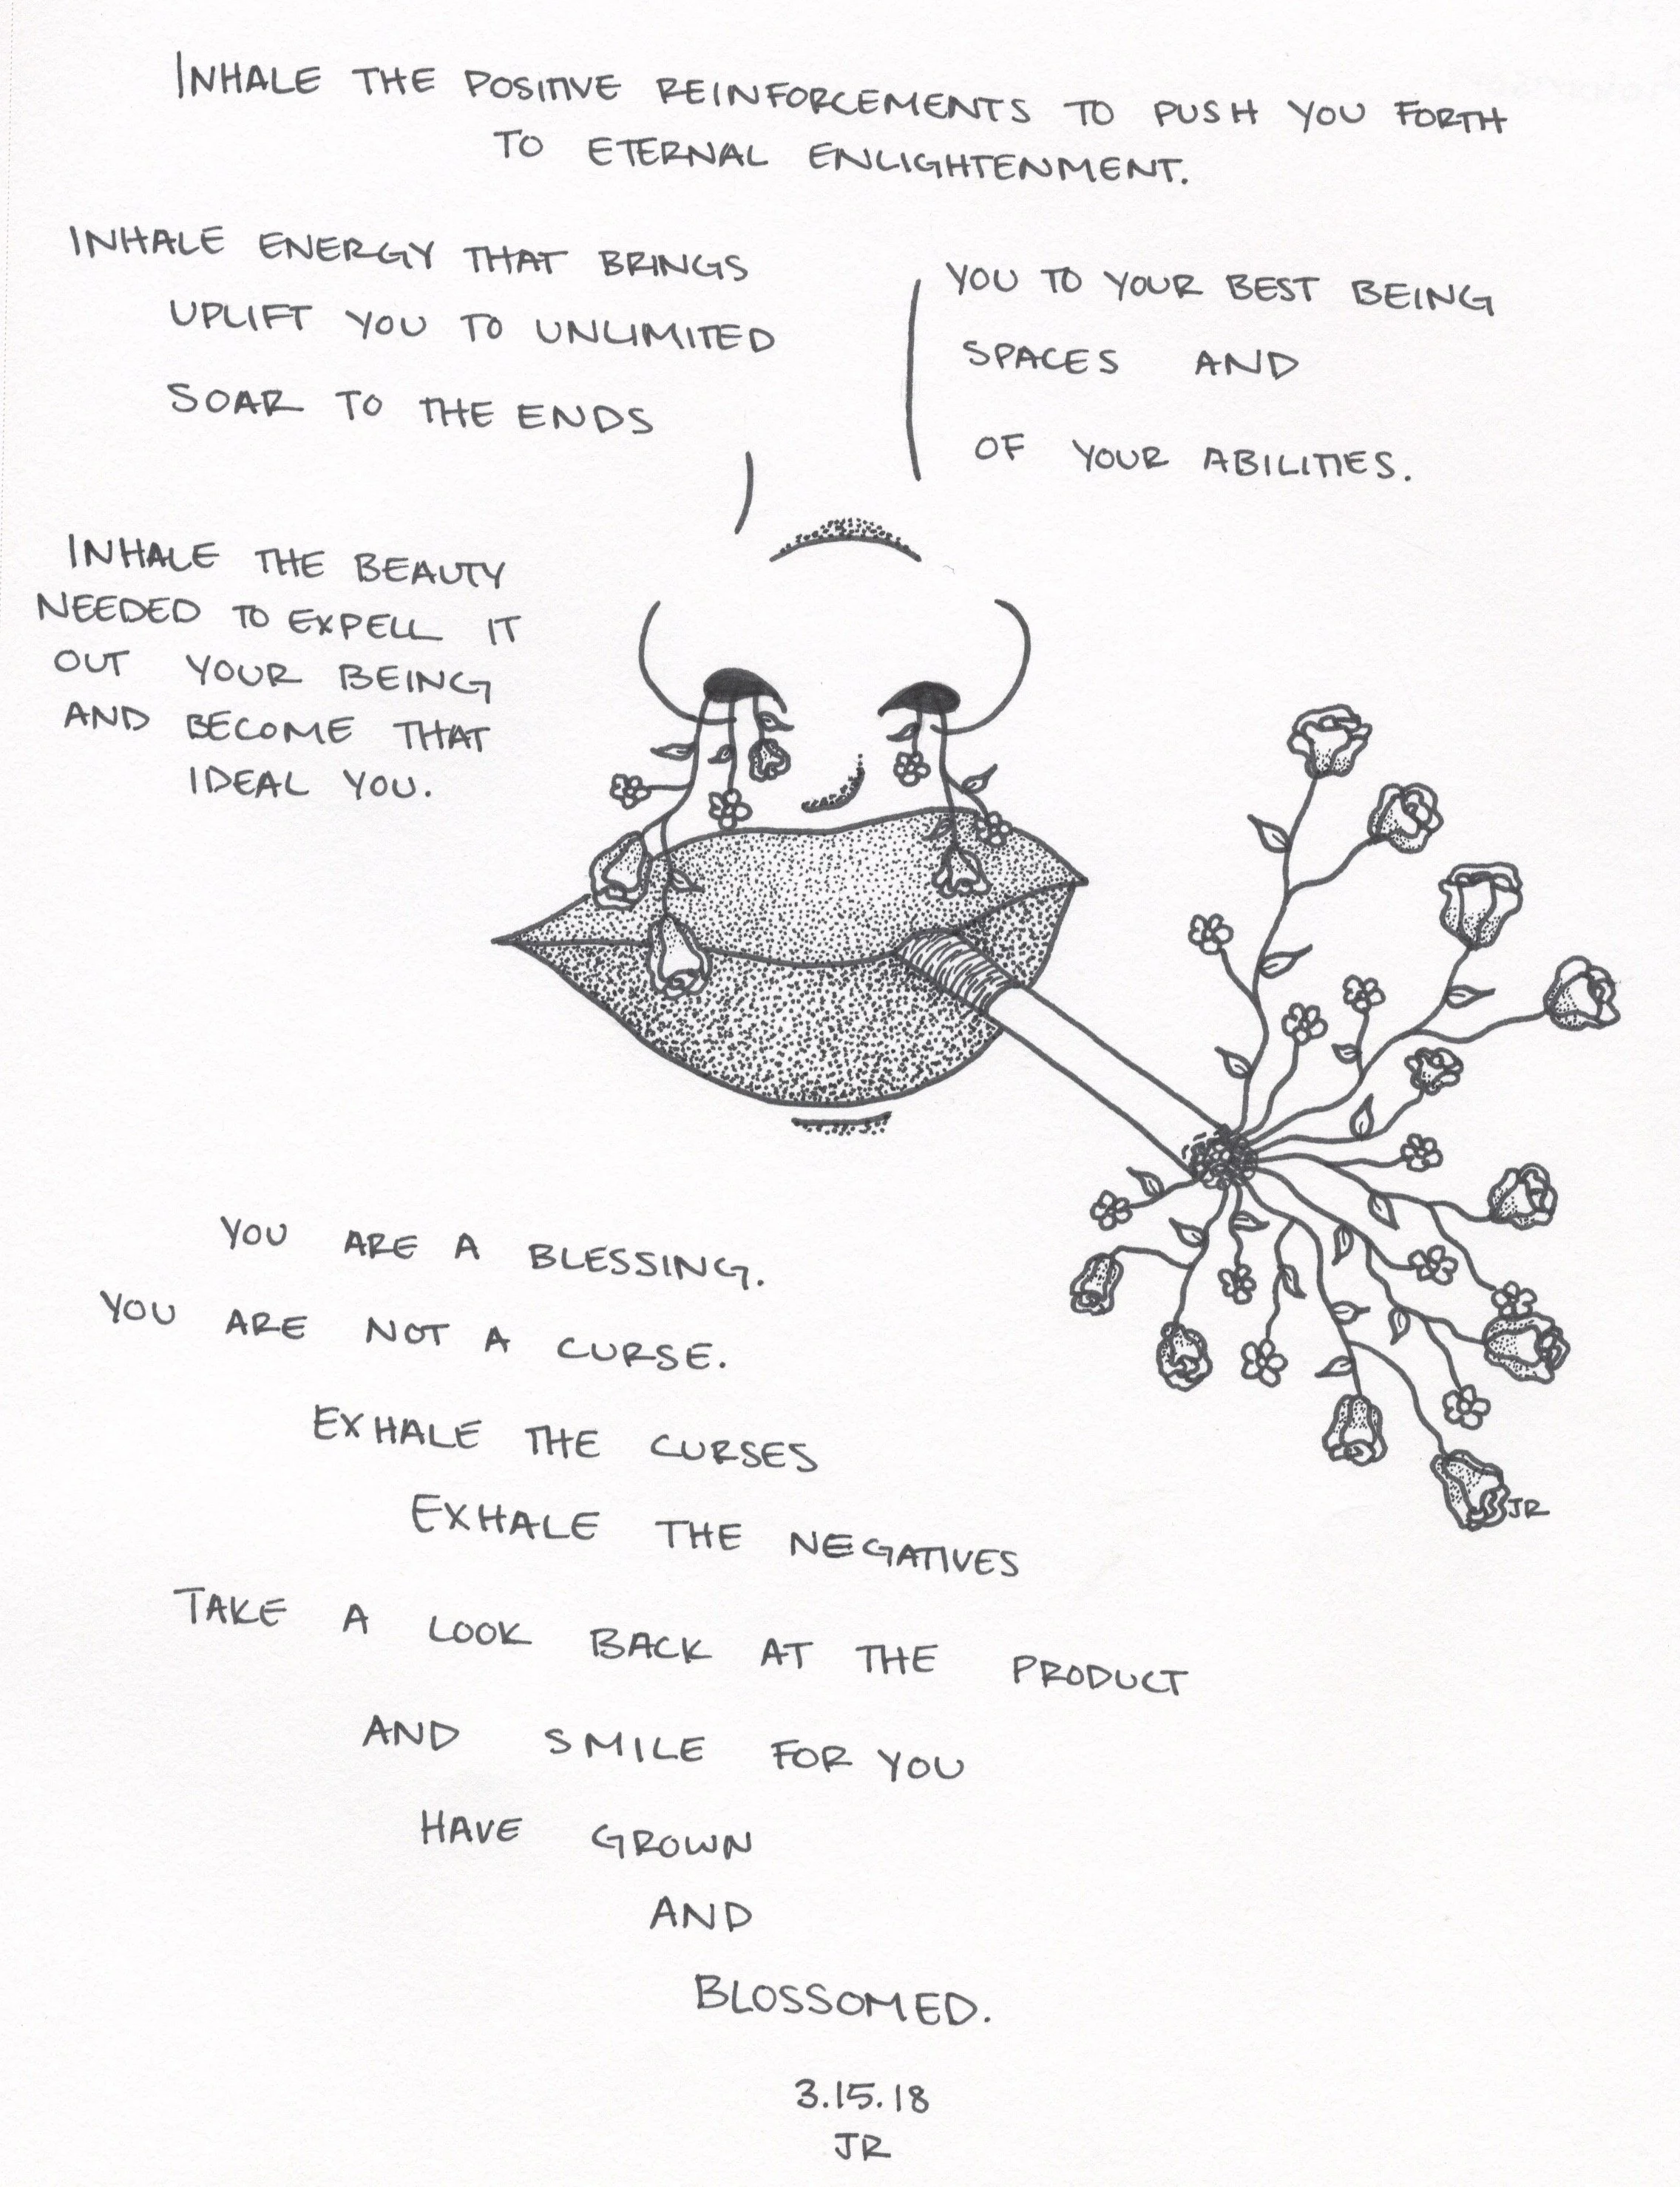 INHALE THE POSITIVE REINFORCEMENTS TO PUSH YOU FORTH
TO ETERNAL ENLIGHTENMENT.
INHALE ENERGY THAT BRINGS YOU TO YOUR BEST BEING
UPLIFT YOU TO UNLIMITED SPACES AND
SOAR TO THE ENDS OF YOUR ABILITIES.
INHALE THE BEAUTY
NEEDED TO EXPELL IT
OUT YOUR BEING
AND BECOME THAT
IDEAL YOU.
YOU ARE A BLESSING.
YOU ARE NOT A CURSE.
EXHALE THE CURSES
EXHALE THE NEGATIVES
JR
TAKE A LOOK BACK AT THE PRODUCT
AND SMILE FOR YOU
HAVE GROWN
AND
BLOSSOMED.
3.15.18
JR